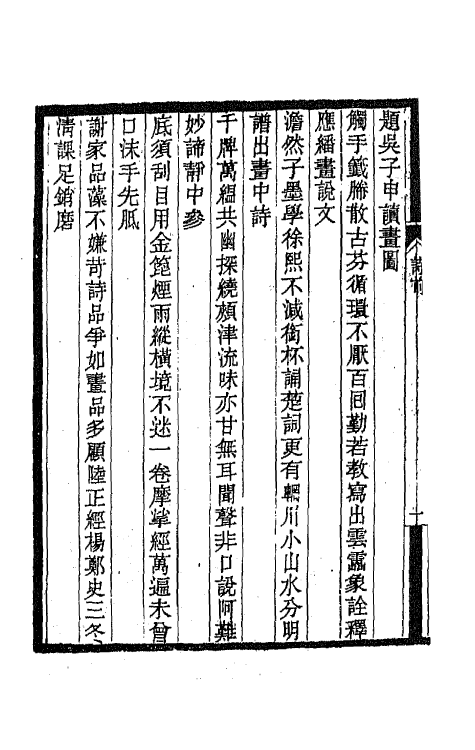 題吳子申讀畫圖
觸手籤幐散古芬循環不厭百回勤若敎寫出雲靁象詮釋
應緟畫說文
澹然子墨學徐熙不減銜杯誦楚詞更有輞川小山水分明
譜出畫中詩
千牌萬縕共幽探繞頰津流味亦甘無耳聞聲非口說阿難
妙諦靜中參
底須刮目用金篦煙雨縱橫境不迷一卷摩挲經萬遍未曾
口沫手先胝
謝家品藻不嫌苛詩品爭如畫品多顧陸正經楊鄭史三冬
淸課足銷磨
詩
一